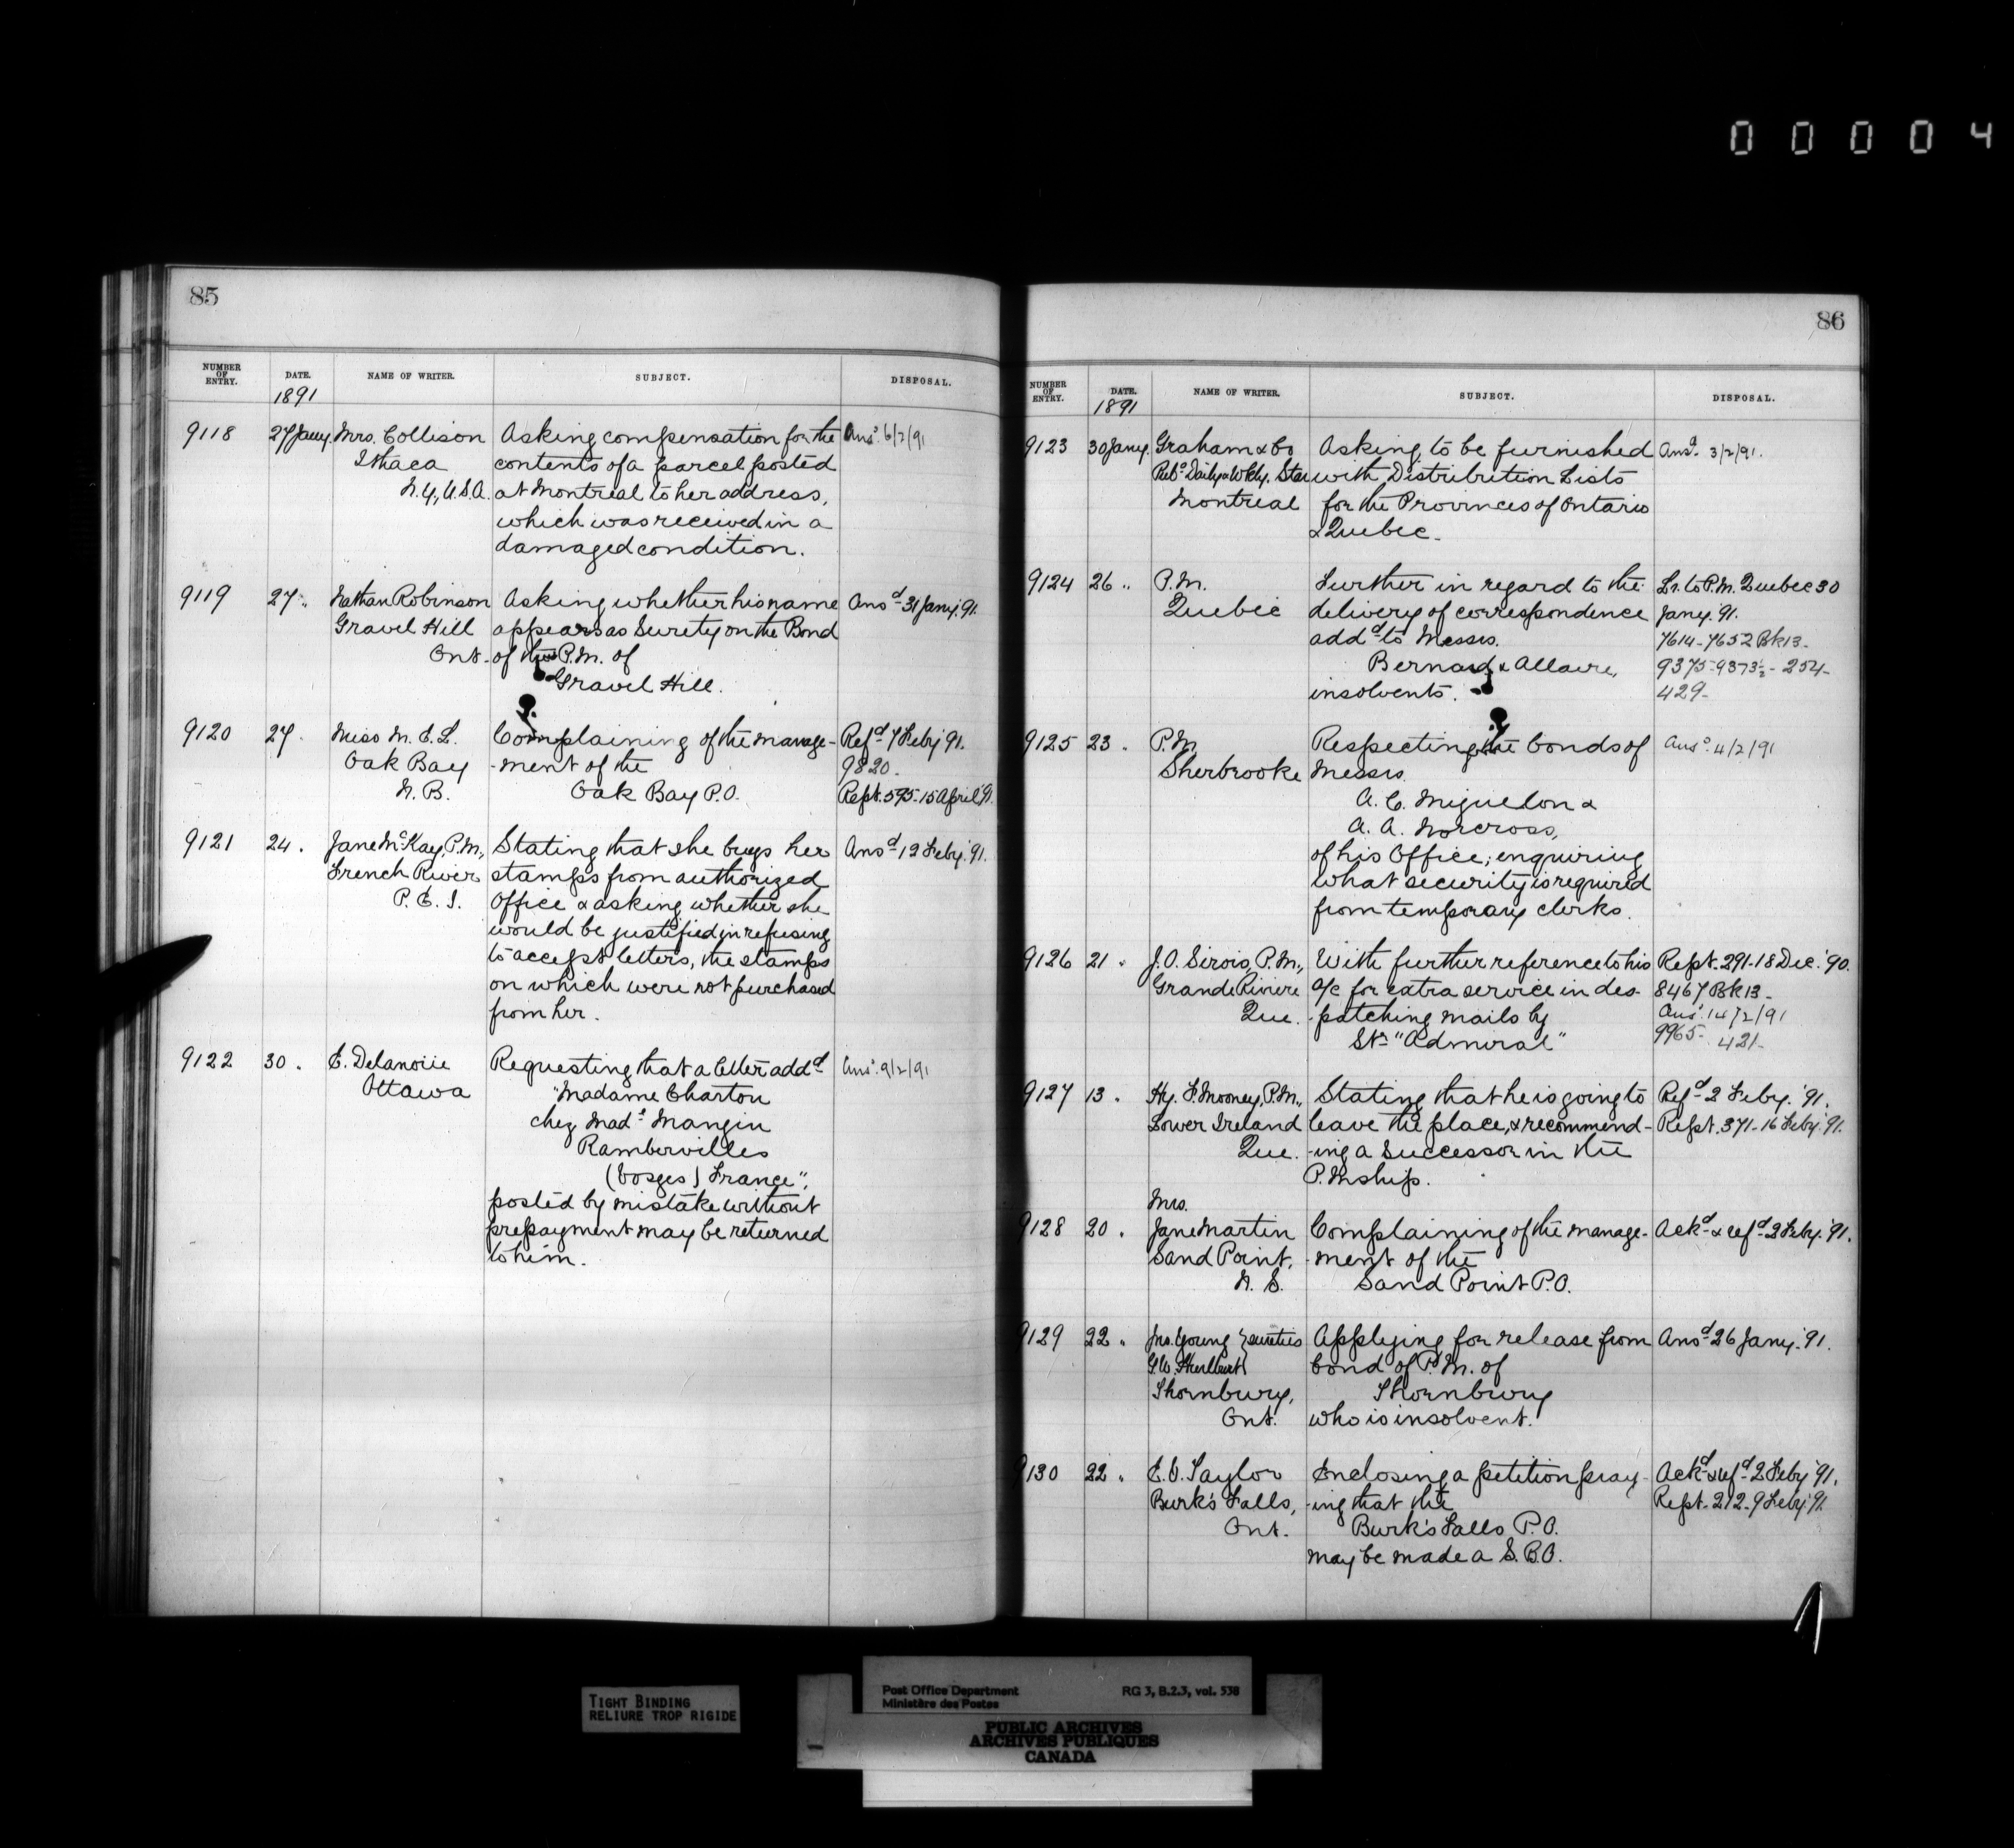 00004
85
NUMBER OF ENTRY. DATE. NAME OF WRITER. SUBJECT. DISPOSAL.
1891
9118 27 Jany. Mrs. Collison Asking compensation for the Ansd. 6/2/91
Ithaca contents of a parcel posted
N.Y., U.S.A. at Montreal to her address,
which was received in a
damaged condition.
9119 27 " Nathan Robinson Asking whether his name Ansd 31 Jany. '91.
Gravel Hill appears as Surety on the Bond
Ont. of the P.M. of
Gravel Hill.
9120 27 . Miss M. E. L. Complaining of the manage- Refd 7 Feby '91.
Oak Bay -ment of the 9820.
N.B. Oak Bay P.O. Rept. 595-15 April '91.
9121 24 . Jane McKay, P.M., Stating that she buys her Ansd 12 Feby. '91.
French River stamps from authorized
P.E.I. Office & asking whether she
would be justified in refusing
to accept letters, the stamps
on which were not purchased
from her.
9122 30 . E. Delanoüe Requesting that a letter addd Ansd. 9/2/91
Ottawa "Madame Charton
chez Made Mangin
Rambervilles
(Vosges) France",
posted by mistake without
prepayment may be returned
to him.
86
NUMBER OF ENTRY. DATE. NAME OF WRITER. SUBJECT. DISPOSAL.
1891
9123 30 Jany. Graham & Co Asking to be furnished Ansd. 3/2/91.
Daily & Wkly. Star with Distribution Lists
Montreal for the Provinces of Ontario
& Quebec.
9124 26 " P.M. Further in regard to the Lr. to P.M. Quebec 30
Quebec delivery of correspondence Jany. '91.
addd to Messrs. 7614-7652 Bk 13-
Bernard & Allaire, 9375-9373½-254-
insolvents. 429-
9125 23 . P.M. Respecting the bonds of Ansd. 4/2/91
Sherbrooke Messrs.
A. C. Miguelon &
A. A. Norcross,
of his Office; enquiring
what security is required
from temporary clerks.
9126 21 . J.O. Sirois, P.M., With further reference to his Rept. 291-18 Dec. '90.
Grande Riviere a/c for extra service in des- 8467 Bk 13-
Que. -patching mails by Ansd. 14/2/91
Str "Admiral" 9965- 421-
9127 13 . Hy. F. Mooney, P.M., Stating that he is going to Refd 2 Feby. '91.
Lower Ireland leave the place, & recommend- Rept. 371-16 Feby. '91.
Que. -ing a successor in the
P.Mship.
Mrs.
9128 20 . Jane Martin Complaining of the manage- Ackd & refd 2 Feby. '91.
Sand Point, -ment of the
N.S. Sand Point P.O.
9129 22 " Jno. Young } sureties Applying for release from Ansd 26 Jany. '91.
G.W. bond of P.M. of
Thornbury, Thornbury
Ont. who is insolvent.
9130 22 " E.O. Taylor Enclosing a petition pray- Ackd & refd 2 Feby '91.
Burk's Falls, -ing that the Rept. 212-9 Feby '91
Ont. Burk's Falls P.O.
may be made a S.B.O.
TIGHT BINDING
RELIURE TROP RIGIDE
Post Office Department RG 3, B.2.3, vol. 538
Ministère des Postes
PUBLIC ARCHIVES
ARCHIVES PUBLIQUES
CANADA